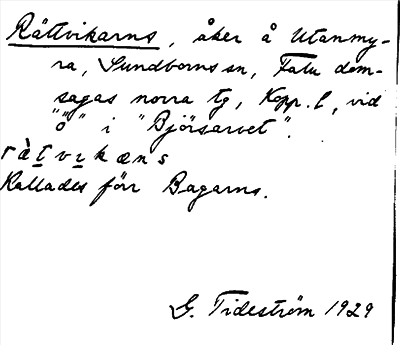 Rättvikarns, åker å Utanmy-
ra, Sundborns sn, Falu dom-
sagas norra tg, Kopp. l., vid
"ö" i "Björsarvet".
rä̀t̲vɪ̲kæns
Kallades förr Bagarns.
G. Tideström 1929